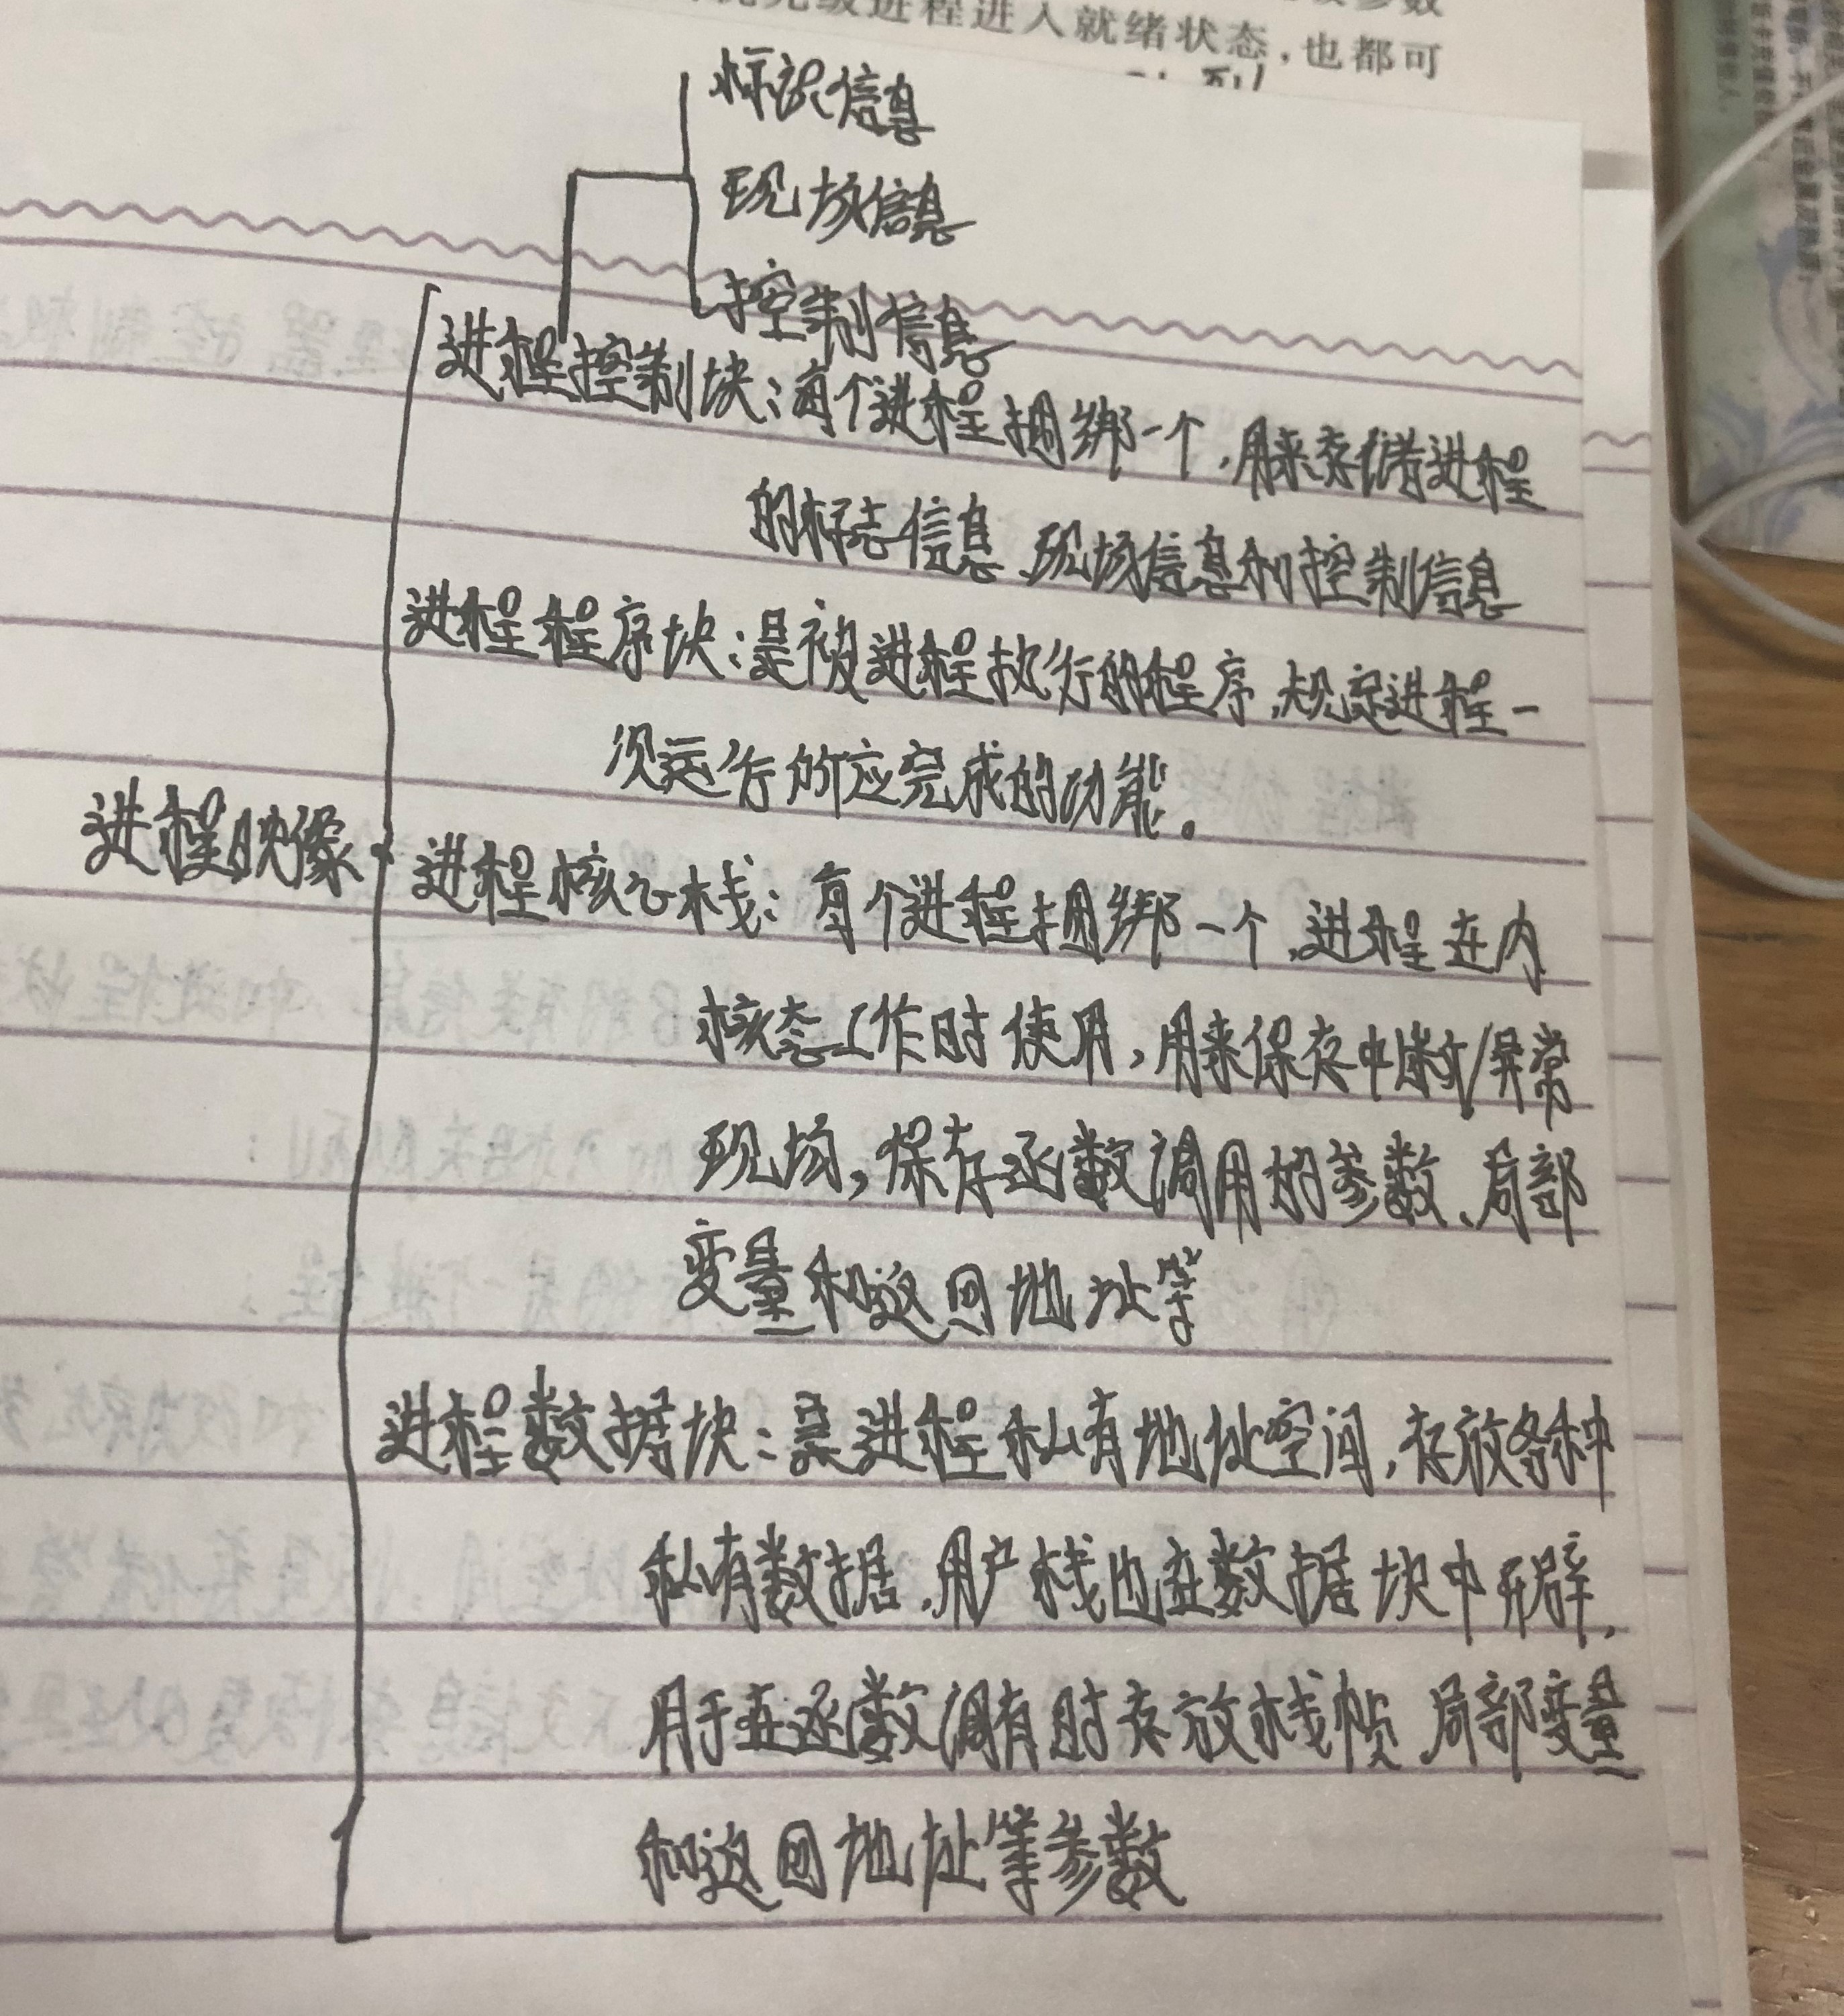 级进程进入就绪状态,也都可
标识信息
现场信息
控制信息
进程控制块:每个进程捆绑一个,用来存储着进程
的标志信息、现场信息和控制信息
进程程序块:是被进程执行的程序,规定进程一
次运行所应完成的功能。
进程映像
进程核心栈:每个进程捆绑一个,进程在内
核态工作时使用,用来保存中断/异常
现场,保存函数调用的参数、局部
变量和返回地址等
进程数据块:是进程私有地址空间,存放各种
私有数据,用户栈也在数据块中开辟,
用于在函数调有时存放栈帧、局部变量
和返回地址等参数